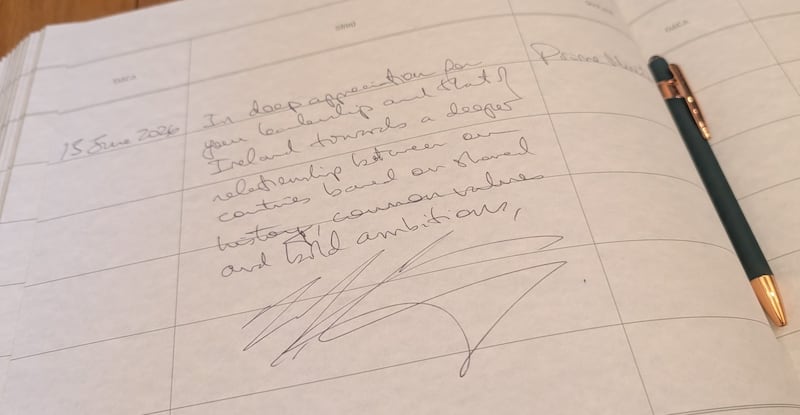 15 June 2026
In deep appreciation for
your leadership and that of
Ireland towards a deeper
relationship between our
countries based on shared
history, common values
and bold ambitions,
Prime